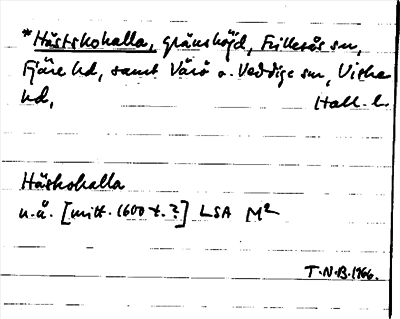 *Hästskohalla, gränshöjd, Frillesås sn,
Fjäre hd, samt Värö o. Veddige sn, Viske
hd, Hall. l.
Häskohalla
u.å. [mitt. 1600-t.?] LSA M²
T.N.B. 1966.